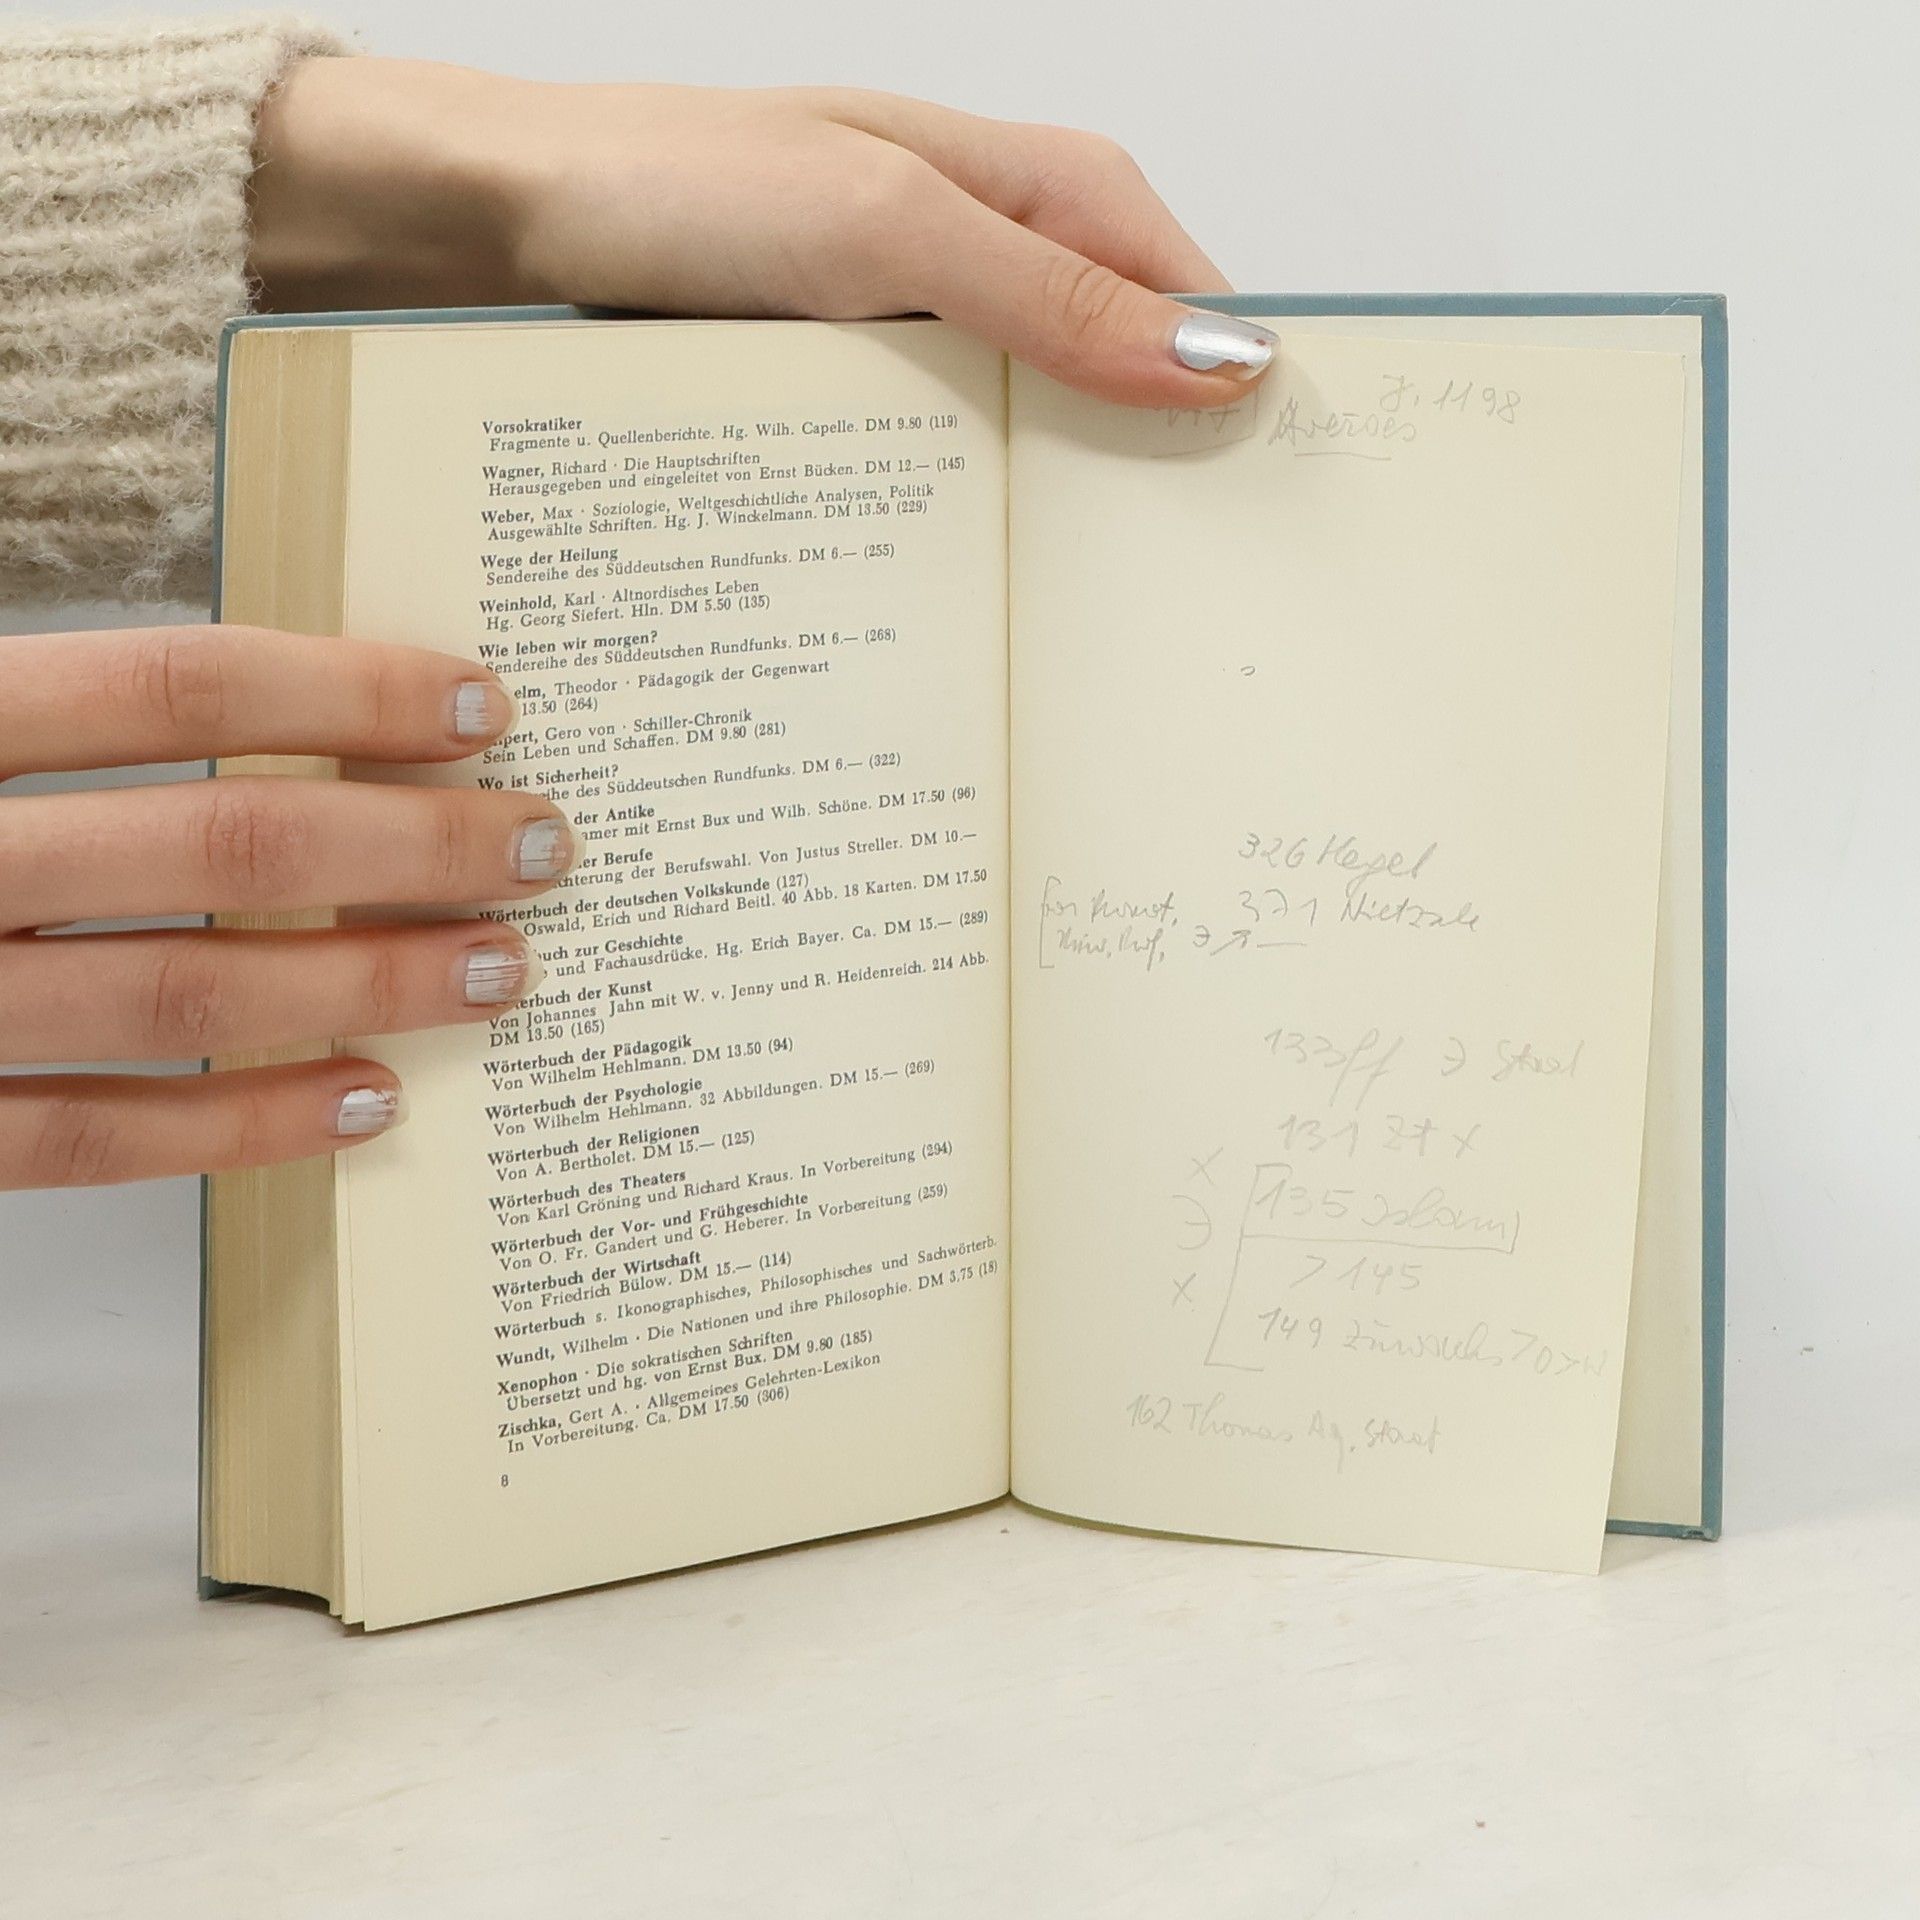 Vorsokratiker
Fragmente u. Quellenberichte. Hg. Wilh. Capelle. DM 9.80 (119)
Wagner, Richard · Die Hauptschriften
Herausgegeben und eingeleitet von Ernst Bücken. DM 12.— (145)
Weber, Max · Soziologie, Weltgeschichtliche Analysen, Politik
Ausgewählte Schriften. Hg. J. Winckelmann. DM 13.50 (229)
Wege der Heilung
Sendereihe des Süddeutschen Rundfunks. DM 6.— (255)
Weinhold, Karl · Altnordisches Leben
Hg. Georg Siefert. Hln. DM 5.50 (135)
Wie leben wir morgen?
Sendereihe des Süddeutschen Rundfunks. DM 6.— (268)
elm, Theodor · Pädagogik der Gegenwart
13.50 (264)
pert, Gero von · Schiller-Chronik
Sein Leben und Schaffen. DM 9.80 (281)
Wo ist Sicherheit?
ihe des Süddeutschen Rundfunks. DM 6.— (322)
der Antike
amer mit Ernst Bux und Wilh. Schöne. DM 17.50 (96)
er Berufe
chterung der Berufswahl. Von Justus Streller. DM 10.—
Wörterbuch der deutschen Volkskunde (127)
Oswald, Erich und Richard Beitl. 40 Abb. 18 Karten. DM 17.50
buch zur Geschichte
und Fachausdrücke. Hg. Erich Bayer. Ca. DM 15.— (289)
erbuch der Kunst
Von Johannes Jahn mit W. v. Jenny und R. Heidenreich. 214 Abb.
DM 13.50 (165)
Wörterbuch der Pädagogik
Von Wilhelm Hehlmann. DM 13.50 (94)
Wörterbuch der Psychologie
Von Wilhelm Hehlmann. 32 Abbildungen. DM 15.— (269)
Wörterbuch der Religionen
Von A. Bertholet. DM 15.— (125)
Wörterbuch des Theaters
Von Karl Gröning und Richard Kraus. In Vorbereitung (294)
Wörterbuch der Vor- und Frühgeschichte
Von O. Fr. Gandert und G. Heberer. In Vorbereitung (259)
Wörterbuch der Wirtschaft
Von Friedrich Bülow. DM 15.— (114)
Wörterbuch s. Ikonographisches, Philosophisches und Sachwörterb.
Wundt, Wilhelm · Die Nationen und ihre Philosophie. DM 3.75 (18)
Xenophon · Die sokratischen Schriften
Übersetzt und hg. von Ernst Bux. DM 9.80 (185)
Zischka, Gert A. · Allgemeines Gelehrten-Lexikon
In Vorbereitung. Ca. DM 17.50 (306)
8
1198
Averoes
326 Hegel
371
133ff Staat
131
135 Islam
> 145
149
162 Thomas Aq. Staat